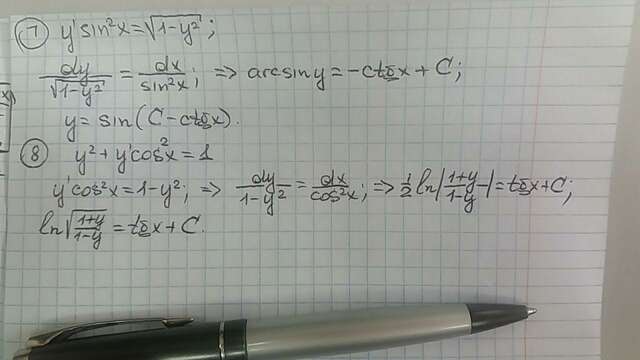 7 y' sin²x = √(1-y²);
dy/√(1-y²) = dx/sin²x; => arcsin y = -ctgx + C;
y = sin(C - ctgx).
8 y² + y'cos²x = 1
y'cos²x = 1-y²; => dy/(1-y²) = dx/cos²x; => 1/2 ln|(1+y)/(1-y)| = tgx + C;
ln√((1+y)/(1-y)) = tgx + C.